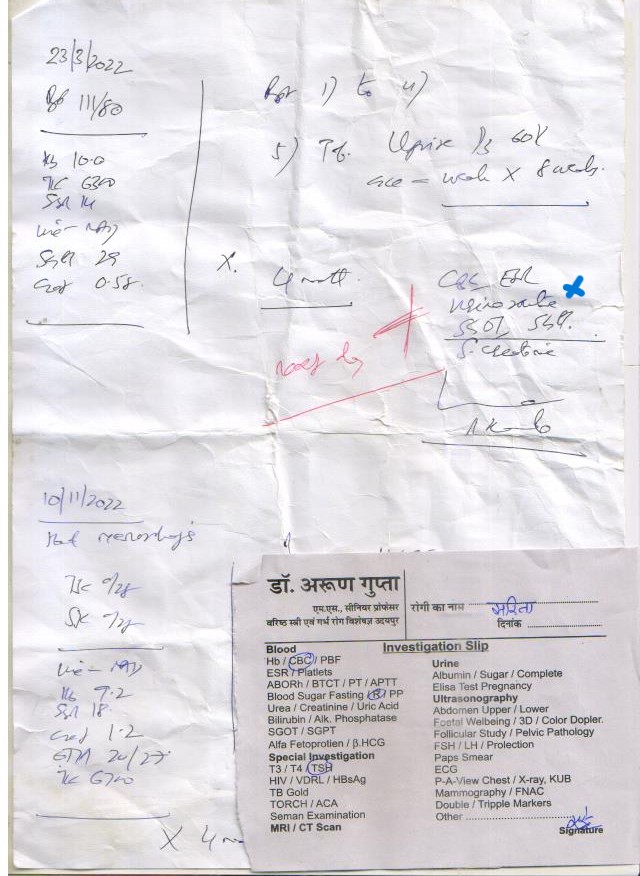 23/3/2022
111/80
Hb 10.0
TLC 6300
ESR 14
Urine - NAD
SGPT 29
Creat 0.58
Rpt 1) to 4)
5) Tab. Uprise D3 60K
once - week X 8 weeks.
X. 4 month
CBC ESR
Urine routine
SGOT SGPT
S. Creatinine
10/11/2022
TJC 0/28
SJC 0/28
Urine - NAD
Hb 9.2
ESR 18
Creat 1.2
20/27
TLC 6700
X 4
डॉ. अरूण गुप्ता
एम.एस., सीनियर प्रोफेसर
वरिष्ठ स्त्री एवं गर्भ रोग विशेषज्ञ उदयपुर
रोगी का नाम सरिता
दिनांक
Investigation Slip
Blood
Hb / CBC / PBF
ESR / Platlets
ABORh / BTCT / PT / APTT
Blood Sugar Fasting / R / PP
Urea / Creatinine / Uric Acid
Bilirubin / Alk. Phosphatase
SGOT / SGPT
Alfa Fetoprotien / β.HCG
Special Investigation
T3 / T4 / TSH
HIV / VDRL / HBsAg
TB Gold
TORCH / ACA
Seman Examination
MRI / CT Scan
Urine
Albumin / Sugar / Complete
Elisa Test Pregnancy
Ultrasonography
Abdomen Upper / Lower
Foetal Welbeing / 3D / Color Dopler.
Follicular Study / Pelvic Pathology
FSH / LH / Prolection
Paps Smear
ECG
P-A-View Chest / X-ray, KUB
Mammography / FNAC
Double / Tripple Markers
Other
Signature